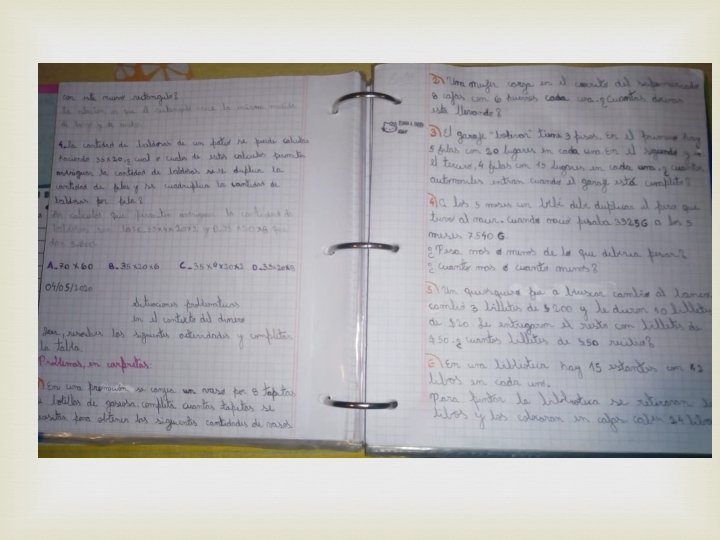 con este nuevo rectangulo?
de largo y de ancho.
4. La cantidad de baldosas de un patio se puede calcular
haciendo 35x20 ¿cual o cuales de estos calculos permiten
averiguar la cantidad de baldosas si se duplica la
cantidad de filas y se cuadruplica la cantidad de
baldosas por fila?
A. 70 x 60 B. 35x20x6 C. 35x4x20x2 D. 35x20x8
04/05/2020
Situaciones problematicas
en el contexto del dinero
Leer, resolver las siguientes actividades y completar
la tabla.
Problemas, en carpetas.
En una promoción se congea un vaso por 8 tapitas
botellas de gaseosa completa cuantas tapitas se
para obtener las siguientes cantidades de vasos.
2) Una mujer carga en el carrito del supermercado
8 cajas con 6 huevos cada una. ¿Cuantas docenas
esta llevando?
3) El garaje "boberon" tiene 3 pisos. En el primero hay
5 filas con 20 lugares en cada una. En el segundo y en
el tercero, 4 filas con 15 lugares en cada una. ¿Cuantos
automoviles entran cuando el garaje está completo?
4) A los 5 meses un bebé debe duplicar el peso que
tuvo al nacer. Cuando nacio pesaba 3325G a los 5
meses 7.540 G.
¿Pesa mas o menos de lo que deberia pesar?
¿Cuanto mas o cuanto menos?
5) Un quiosquero fue a buscar cambio al banco
cambió 3 billetes de $200 y le dieron 10 billetes
de $20. Le entregaron el resto con billetes de
$50. ¿Cuantos billetes de $50 recibio?
6) En una biblioteca hay 15 estantes con 42
libros en cada uno.
Para pintar la biblioteca se retiraron
libros y los colocaron en cajas. Caben 24 libros